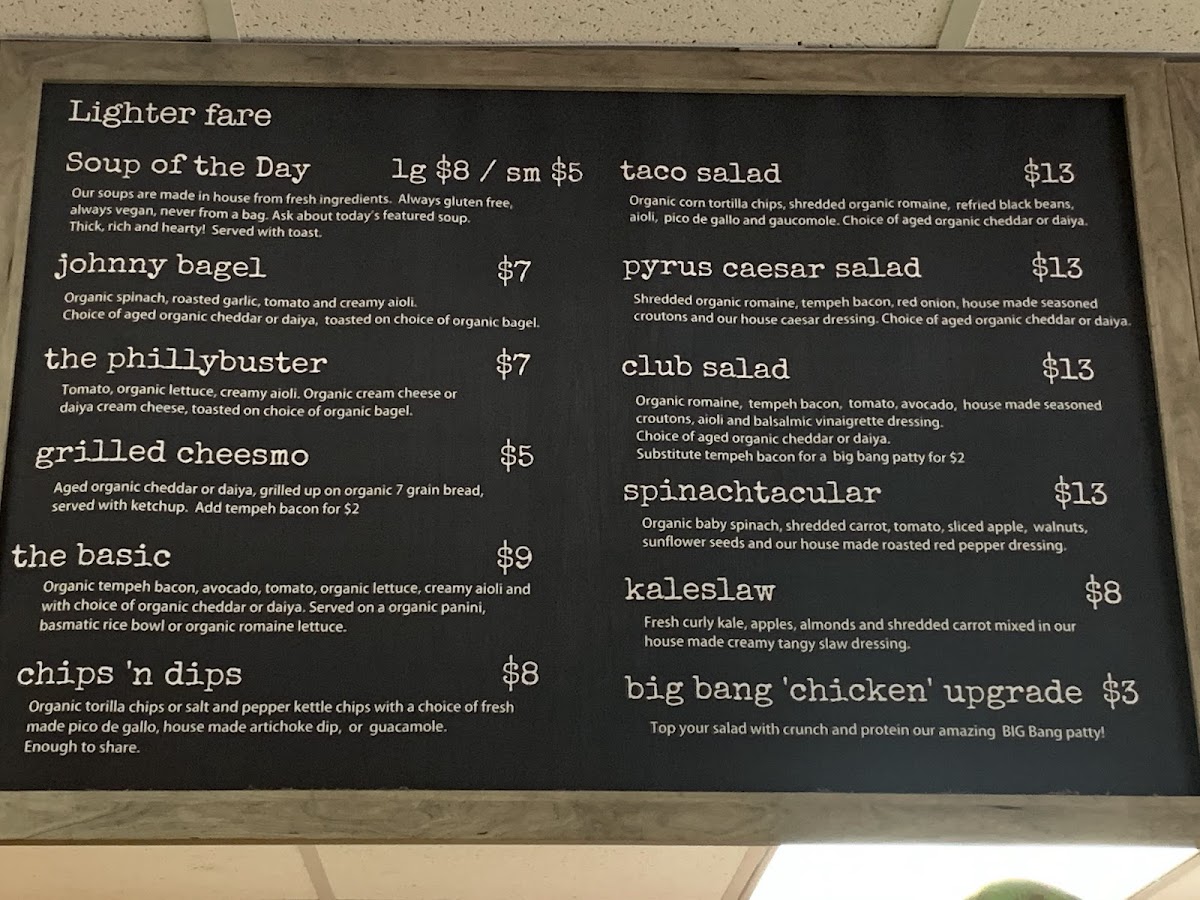 Lighter fare
Soup of the Day lg $8 / sm $5
Our soups are made in house from fresh ingredients. Always gluten free,
always vegan, never from a bag. Ask about today's featured soup.
Thick, rich and hearty! Served with toast.
johnny bagel $7
Organic spinach, roasted garlic, tomato and creamy aioli.
Choice of aged organic cheddar or daiya, toasted on choice of organic bagel.
the phillybuster $7
Tomato, organic lettuce, creamy aioli. Organic cream cheese or
daiya cream cheese, toasted on choice of organic bagel.
grilled cheesmo $5
Aged organic cheddar or daiya, grilled up on organic 7 grain bread,
served with ketchup. Add tempeh bacon for $2
the basic $9
Organic tempeh bacon, avocado, tomato, organic lettuce, creamy aioli and
with choice of organic cheddar or daiya. Served on a organic panini,
basmatic rice bowl or organic romaine lettuce.
chips 'n dips $8
Organic torilla chips or salt and pepper kettle chips with a choice of fresh
made pico de gallo, house made artichoke dip, or guacamole.
Enough to share.
taco salad $13
Organic corn tortilla chips, shredded organic romaine, refried black beans,
aioli, pico de gallo and gaucomole. Choice of aged organic cheddar or daiya.
pyrus caesar salad $13
Shredded organic romaine, tempeh bacon, red onion, house made seasoned
croutons and our house caesar dressing. Choice of aged organic cheddar or daiya.
club salad $13
Organic romaine, tempeh bacon, tomato, avocado, house made seasoned
croutons, aioli and balsalmic vinaigrette dressing.
Choice of aged organic cheddar or daiya.
Substitute tempeh bacon for a big bang patty for $2
spinachtacular $13
Organic baby spinach, shredded carrot, tomato, sliced apple, walnuts,
sunflower seeds and our house made roasted red pepper dressing.
kaleslaw $8
Fresh curly kale, apples, almonds and shredded carrot mixed in our
house made creamy tangy slaw dressing.
big bang 'chicken' upgrade $3
Top your salad with crunch and protein our amazing BIG Bang patty!